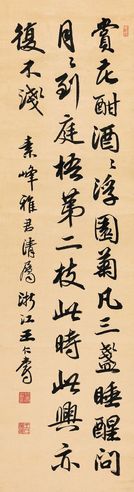 賞花酣酒酒浮園菊凡三盞睡醒問
月月到庭梧第二枝此時此興亦
復不淺
素峰雅君清屬 浙江王仁堪